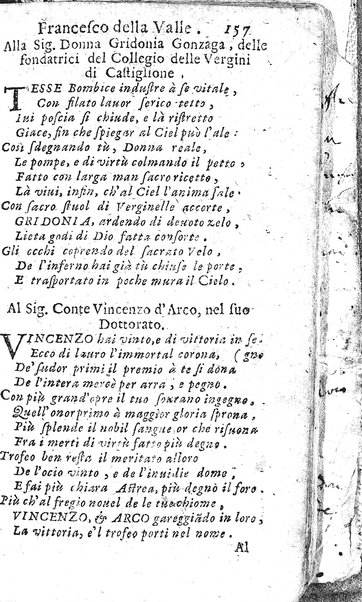 Francesco della Valle. 157
Alla Sig. Donna Gridonia Gonzaga, delle
fondatrici del Collegio delle Vergini
di Castiglione.
TESSE Bombice industre à se vitale,
Con filato lavor serico tetto,
Iui poscia si chiude, e là ristretto
Giace, fin che spiegar al Ciel può l'ale:
Così sdegnando tù, Donna reale,
Le pompe, e di virtù colmando il petto,
Fatto con larga man sacro ricetto,
Là viui, infin, ch'al Ciel l'anima sale.
Con sacro stuol di Verginelle accorte,
GRIDONIA, ardendo di deuoto zelo,
Lieta godi di Dio fatta consorte.
Gli occhi coprendo del sacrato Velo,
De l'inferno hai già tù chiuse le porte,
E trasportato in poche mura il Cielo.
Al Sig. Conte Vincenzo d'Arco, nel suo
Dottorato.
VINCENZO hai vinto, e di vittoria in se-
Ecco di lauro l'immortal corona, (gno
De' sudor primi il premio à te si dona
De l'intera mercè per arra, e pegno.
Con più grand'opre il tuo sourano ingegno,
Quell'onor primo à maggior gloria sprona,
Più splende il nobil sangue, or che risuona
Frà i merti di virtù fatto più degno.
Trofeo ben resta il meritato alloro
De l'ocio vinto, e de l'inuidie dome,
E fai più chiara Astrea, più degno il foro.
Più ch'al fregio nouel de le tue chiome,
VINCENZO, & ARCO gareggiãdo in loro,
La vittoria, e'l trofeo porti nel nome.
Al